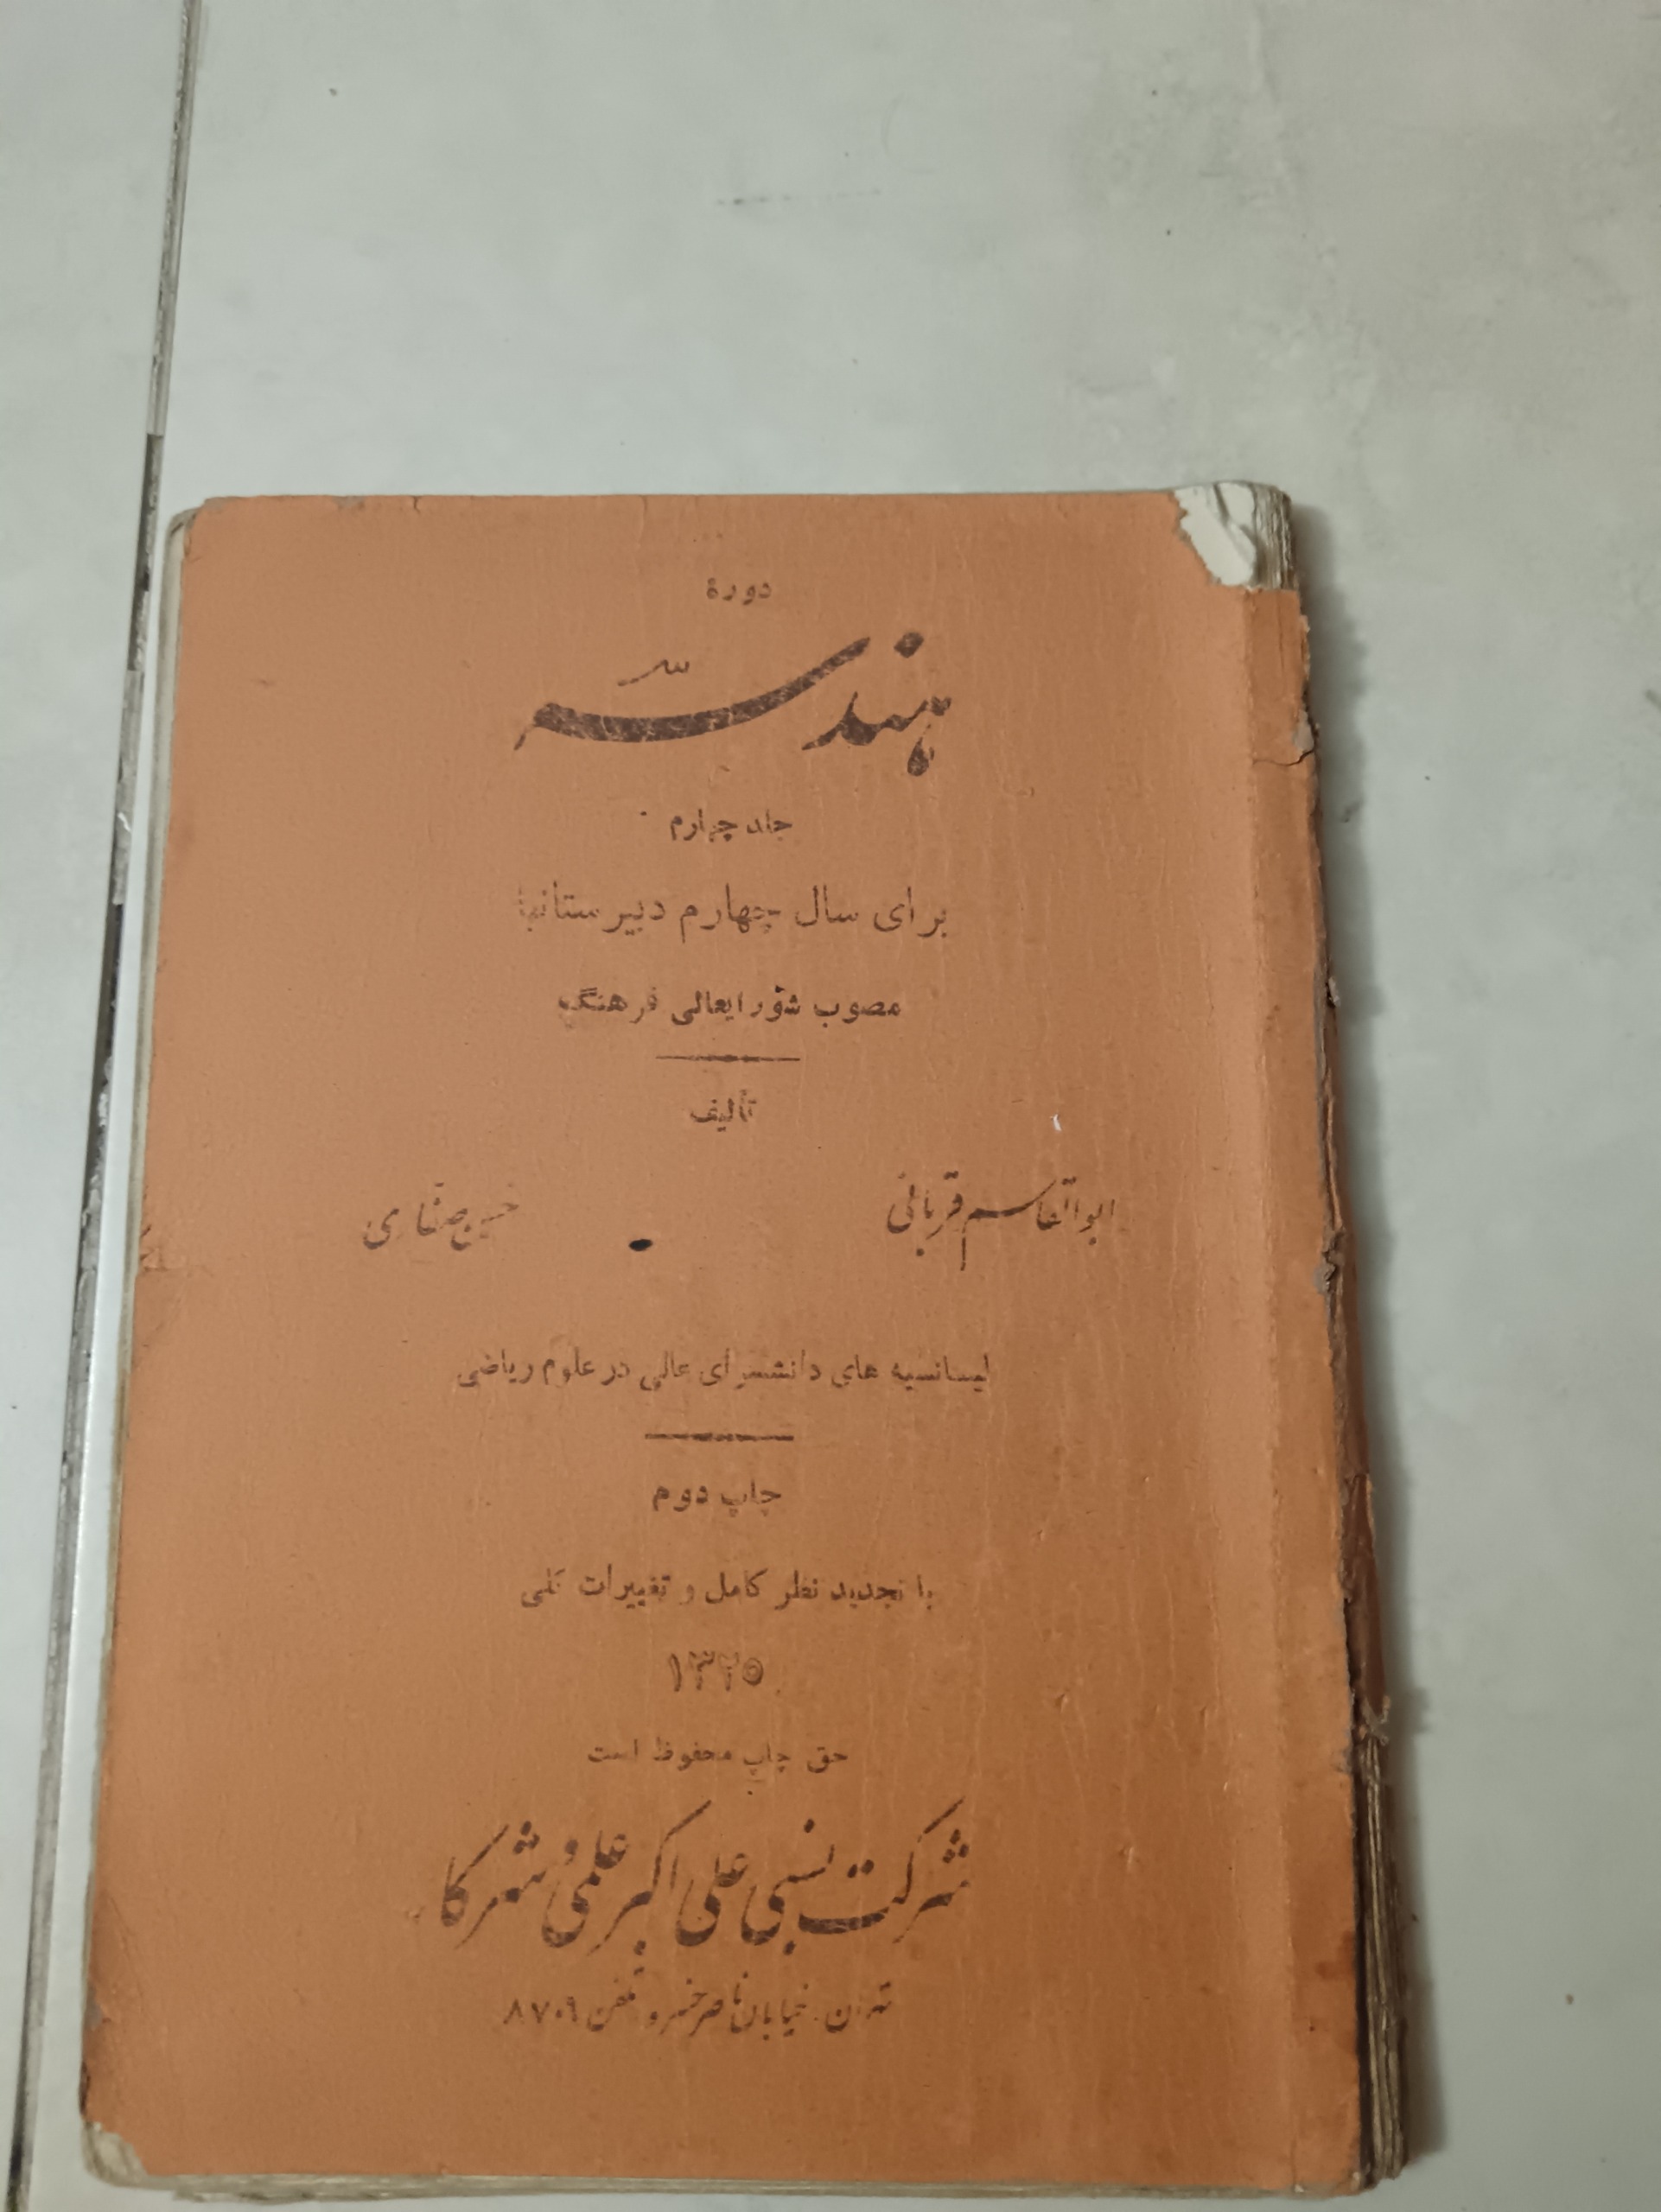 دورهٔ
هندسه
جلد چهارم
برای سال چهارم دبیرستانها
مصوب شورایعالی فرهنگ
تألیف
ابوالقاسم قربانی
حسن صفاری
لیسانسیه های دانشسرای عالی در علوم ریاضی
چاپ دوم
با تجدید نظر کامل و تغییرات کلی
۱۳۲۵
حق چاپ محفوظ است
شرکت نسبی علی اکبر علمی و شرکا
تهران. خیابان ناصرخسرو تلفن ۸۷۰۹